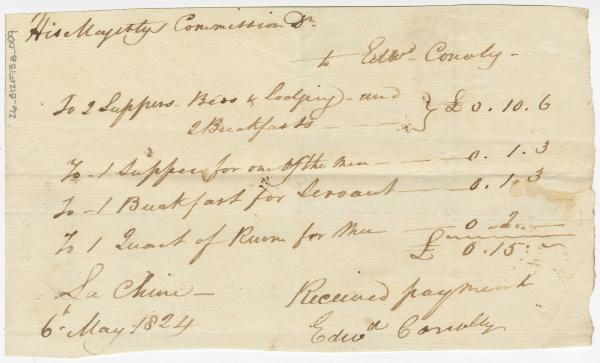 His Majestys Commission Dr
to Edwd Conoly -
To 2 Suppers Beds & Lodging - and
2 Breakfasts - } £ 0. 10. 6
To - 1 Supper for one of the men - 0. 1. 3
To - 1 Breakfast for Servant - 0. 1. 3
To 1 Quart of Rum for Men 0 2 "
£ 0. 15: "
La Chine -
6th May 1824
Received payment
Edwd Conolly
26-B12F138-009